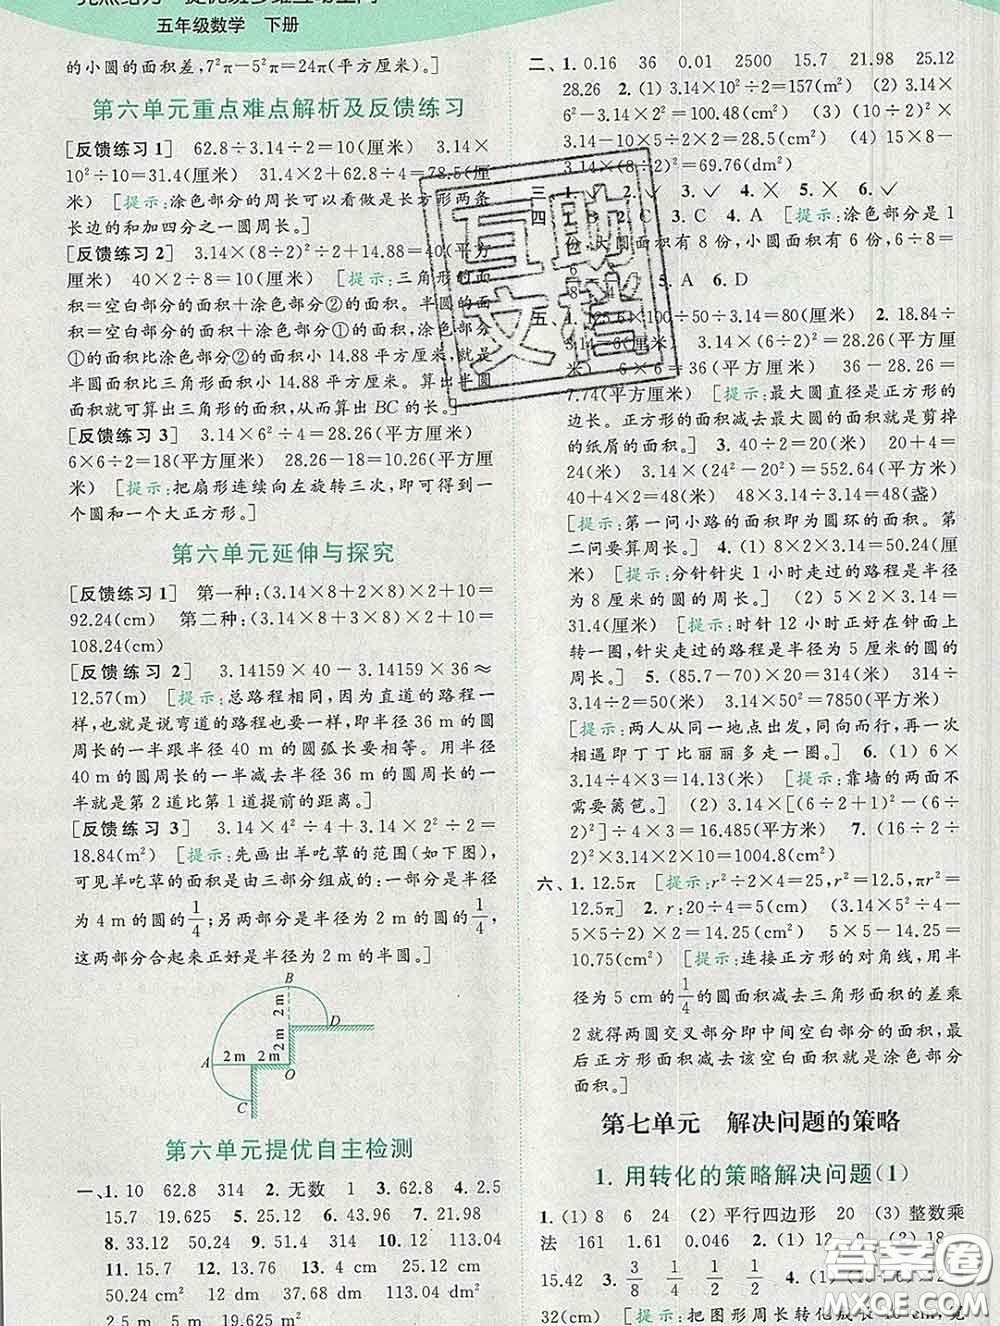 五年级数学 下册
的小圆的面积差,7²π－5²π＝24π(平方厘米)。]
第六单元重点难点解析及反馈练习
[反馈练习 1] 62.8÷3.14÷2＝10(厘米) 3.14×
10²÷10＝31.4(厘米) 31.4×2＋62.8÷4＝78.5(厘
米) [提示:涂色部分的周长可以看做是长方形两条
长边的和加四分之一圆周长。]
[反馈练习 2] 3.14×(8÷2)²÷2＋14.88＝40(平方
厘米) 40×2÷8＝10(厘米) [提示:三角形的面
积＝空白部分的面积＋涂色部分②的面积。半圆的面
积＝空白部分的面积＋涂色部分①的面积,涂色部分
①的面积比涂色部分②的面积小 14.88 平方厘米,就是
半圆面积比三角形面积小 14.88 平方厘米。算出半圆
面积就可算出三角形的面积,从而算出 BC 的长。]
[反馈练习 3] 3.14×6²÷4＝28.26(平方厘米)
6×6÷2＝18(平方厘米) 28.26－18＝10.26(平方厘
米) [提示:把扇形连续向左旋转三次,即可得到一
个圆和一个大正方形。]
第六单元延伸与探究
[反馈练习 1] 第一种:(3.14×8＋2×8)×2＋10＝
92.24(cm) 第二种:(3.14×8＋3×8)×2＋10＝
108.24(cm)
[反馈练习 2] 3.14159×40－3.14159×36≈
12.57(m) [提示:总路程相同,因为直道的路程一
样,也就是说弯道的路程也要一样,即半径 36 m 的圆
周长的一半跟半径 40 m 的圆弧长要相等。用半径
40 m 的圆周长的一半减去半径 36 m 的圆周长的一
半就是第 2 道比第 1 道提前的距离。]
[反馈练习 3] 3.14×4²÷4＋3.14×2²÷2＝
18.84(m²) [提示:先画出羊吃草的范围(如下图),
可见羊吃草的面积是由三部分组成的:一部分是半径
为 4 m 的圆的1/4;另两部分是半径为 2 m 的圆的1/4,
这两部分合起来正好是半径为 2 m 的半圆。]
B
2 m
D
2 m
A 2 m 2 m
O
C
第六单元提优自主检测
一、1. 10 62.8 314 2. 无数 1 3. 62.8 4. 2.5
15.7 19.625 5. 25.12 6. 43.96 7. 21.98
8. 33.12 50.24 9. 25.12 10. 12 113.04
11. 15.7 dm 19.625 dm² 12. 12.56 113.04
50.24 cm² 12 dm 37.68 dm 113.04 dm²
二、1. 0.16 36 0.01 2500 15.7 21.98 25.12
28.26 2. (1) 3.14×10²÷2＝157(m²) (2) 3.14×
3.14×(8÷2)²＝69.76(dm²)
3. ✓ 4. ✕ 5. ✕ 6. ✓
C 3. C 4. A [提示:涂色部分是 1
份,大圆面积有 8 份,小圆面积有 6 份,6÷8＝
5. A 6. D
÷50÷3.14＝80(厘米) 2. 18.84÷
3.14×(6÷2)²＝28.26(平方厘
米) 6×6＝36(平方厘米) 36－28.26＝
7.74(平方厘米) [提示:最大圆的直径是正方形的
边长。正方形的面积减去最大圆的面积就是剪掉
的纸屑的面积。] 3. 40÷2＝20(米) 20＋4＝
24(米) 3.14×(24²－20²)＝552.64(平方米)
40＋4×2＝48(米) 48×3.14÷3.14＝48(盏)
[提示:第一问小路的面积即为圆环的面积。第
二问要算周长。] 4. (1) 8×2×3.14＝50.24(厘
米) [提示:分针针尖 1 小时走过的路程是半径
为 8 厘米的圆的周长。] (2) 5×2×3.14＝
31.4(厘米) [提示:时针 12 小时正好在钟面上
转一图,针尖走过的路程是半径为 5 厘米的圆的
周长。] 5. (85.7－70)×20＝314(米) 314÷
3.14÷2＝50(米) 3.14×50²＝7850(平方米)
[提示:两人从同一地点出发,同向而行,再一次
相遇即丁丁比丽丽多走一圈。] 6. (1) 6×
3.14÷4×3＝14.13(米) [提示:靠墙的两面不
需要篱笆。] (2) 3.14×[(6÷2＋1)²－(6÷
2)²]÷4×3＝16.485(平方米) 7. (16÷2÷
2)²×3.14×2×10＝1004.8(cm²)
六、1. 12.5π [提示:r²÷2×4＝25,r²＝12.5,πr²＝
12.5π] 2. r:20÷4＝5(cm) (3.14×5²÷4－
5×5÷2)×2＝14.25(cm²) 5×5－14.25＝
10.75(cm²) [提示:连接正方形的对角线,用半
径为 5 cm 的1/4的圆面积减去三角形面积的差乘
2 就得两圆交叉部分即中间空白部分的面积,最
后正方形面积减去该空白面积就是涂色部分
面积。]
第七单元 解决问题的策略
1. 用转化的策略解决问题(1)
1. (1) 8 6 24 (2) 平行四边形 20 (3) 整数乘
法 161 1.61 0.046 2. (1) 12 (2) 18
15.42 3. 3/8 1/4 1/2 1/4 4.
32(cm) [提示:把图形周长转化成长
互助文档
答案圈
MXQE.COM